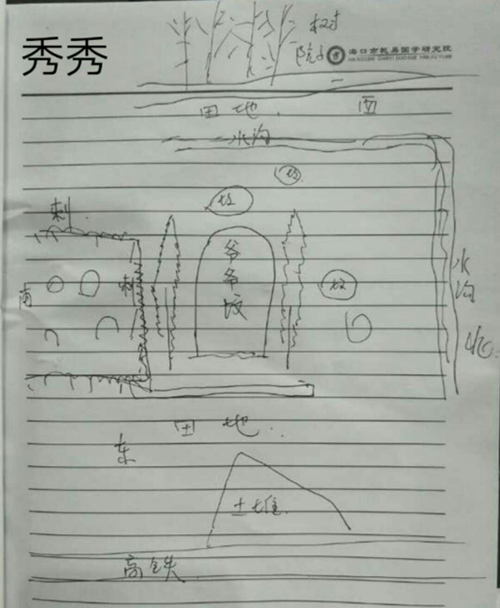 秀秀
树
院子
海口市乾易国学研究院
田地
西
水沟
坟
坟
刺
爷爷坟
南
刺
坟
水沟
北
田地
东
土堆
高铁